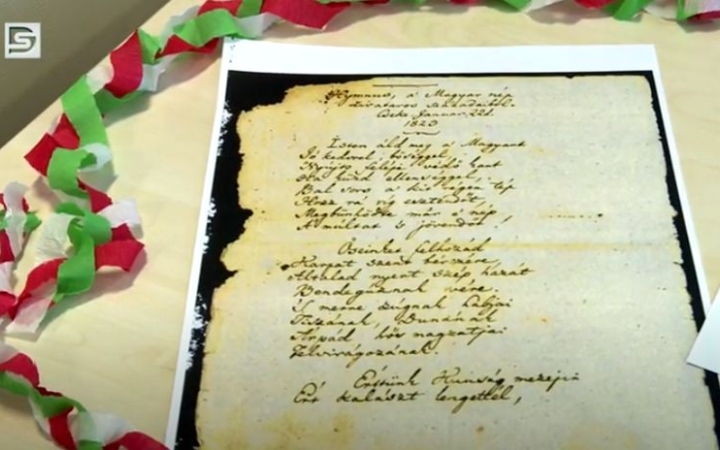 Hymnus, a' Magyar nép
zivataros századaiból.
Cseke Januar. 22d.
1823
Isten áld meg a' Magyart
Jó kedvvel, bőséggel,
Nyújts feléje védő kart
Ha küzd ellenséggel;
Bal sors a' kit régen tép
Hozz rá víg esztendőt,
Megbünhödte már e' nép
A' multat 's jövendőt!
Őseinket felhozád
Kárpát szent bérczére,
Általad nyert szép hazát
Bendegúznak vére.
'S merre zúgnak habjai
Tiszának, Dunának,
Árpád hős magzatjai
Felvirágozának.
Értünk Kunság mezein
Ért kalászt lengettél,